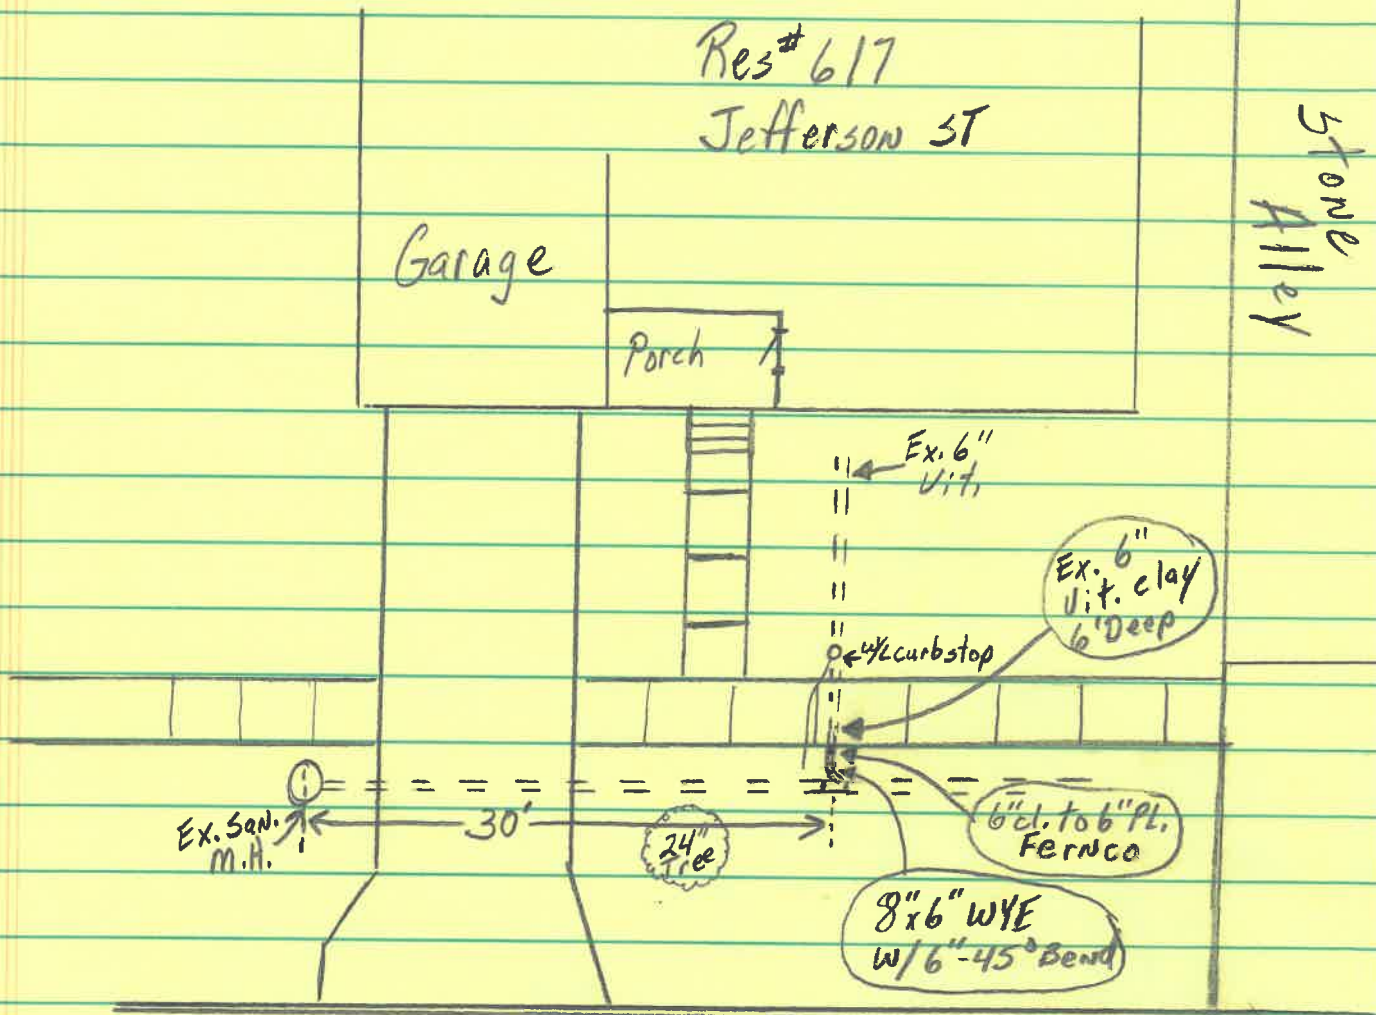 Res# 617
Jefferson ST
Stone
Alley
Garage
Porch
Ex. 6"
Vit.
Ex. 6"
Vit. clay
6' Deep
W/L curbstop
Ex. San.
M.H.
30'
24"
Tree
6" cl. to 6" PL.
Fernco
8"x6" WYE
W/ 6"-45° Bend